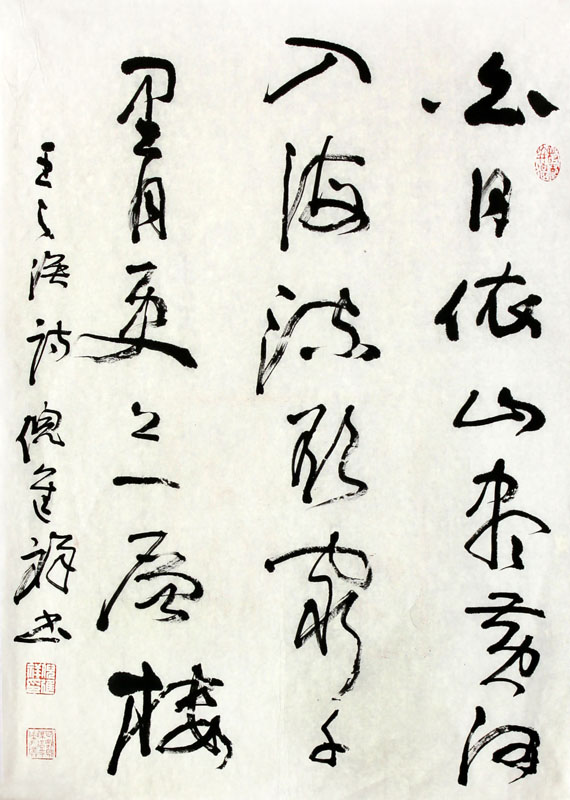 白日依山尽黄河
入海流欲穷千
里目更上一层楼
王之涣诗倪进祥书